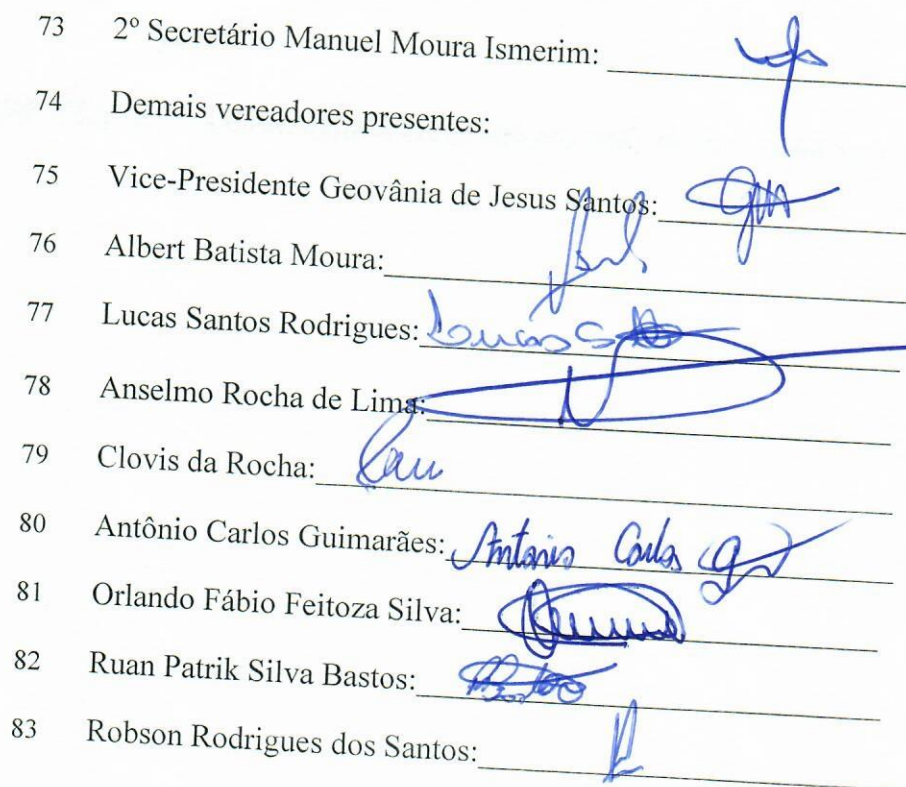 73 2º Secretário Manuel Moura Ismerim:
74 Demais vereadores presentes:
75 Vice-Presidente Geovânia de Jesus Santos:
76 Albert Batista Moura:
77 Lucas Santos Rodrigues: Lucas S
78 Anselmo Rocha de Lima:
79 Clovis da Rocha:
80 Antônio Carlos Guimarães: Antonio Carlos G
81 Orlando Fábio Feitoza Silva:
82 Ruan Patrik Silva Bastos:
83 Robson Rodrigues dos Santos: